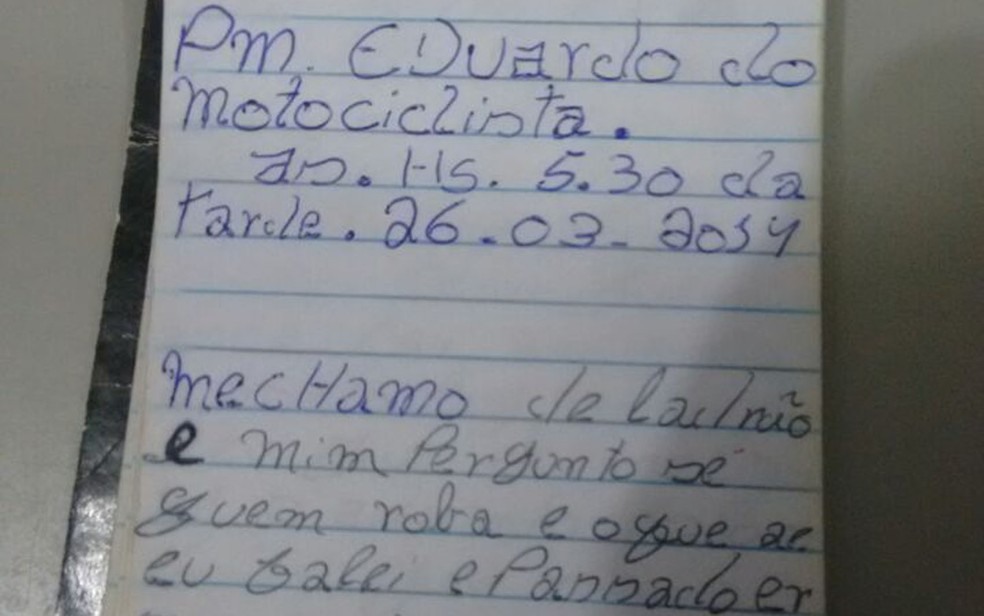 Pm. EDuardo do
motociclista.
as. Hs. 5.30 da
tarde. 26.03-2014
mecHamo de ladrão
e mim Pergunto se
quem roba e oque ae
eu falei e Passado er